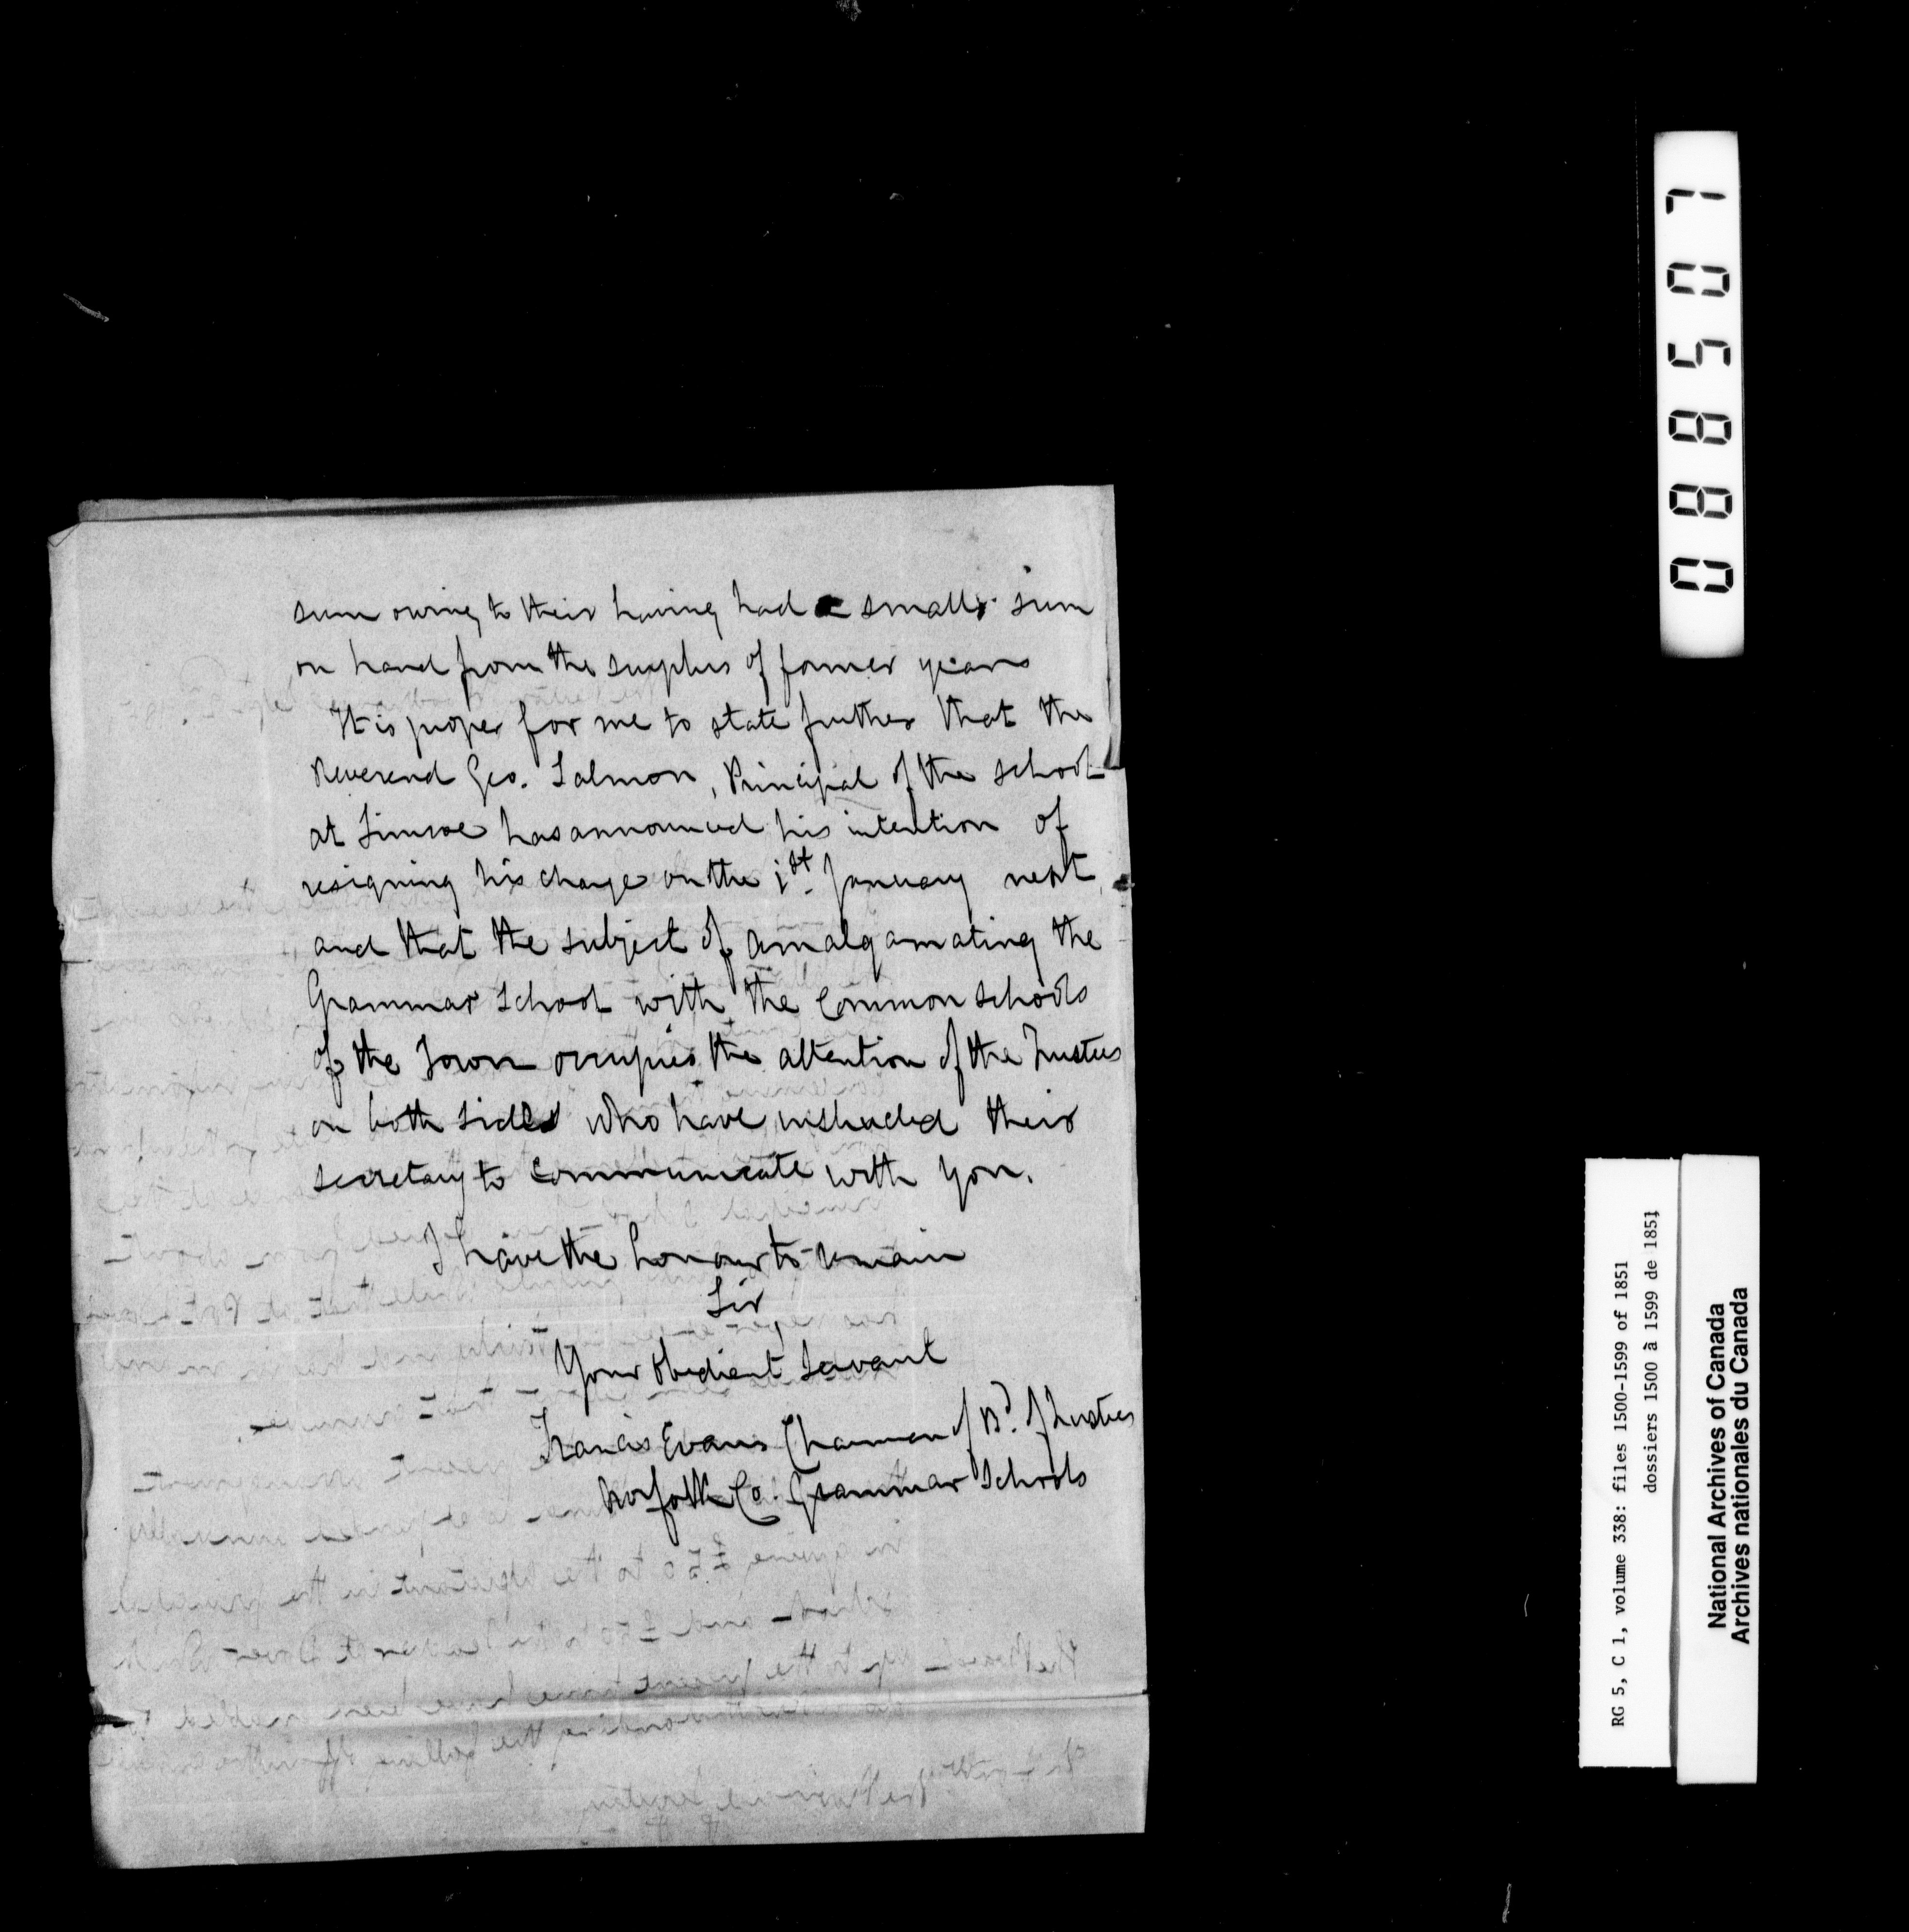 sum owing to their having had a small sum
on hand from the surplus of former years
It is proper for me to state further that the
Reverend Geo. Salmon, Principal of the school
at Simcoe has announced his intention of
resigning his charge on the 1st. January next
and that the subject of amalgamating the
Grammar School with the Common Schools
of the Town occupies the attention of the Trustees
on both sides who have instructed their
secretary to communicate with you.
I have the honour to remain
Sir
Your Obedient Servant
Francis Evans Chairman of Bd. of Trustees
Norfolk Co. Grammar Schools
088507
RG 5, C 1, volume 338: files 1500-1599 of 1851
dossiers 1500 à 1599 de 1851
National Archives of Canada
Archives nationales du Canada